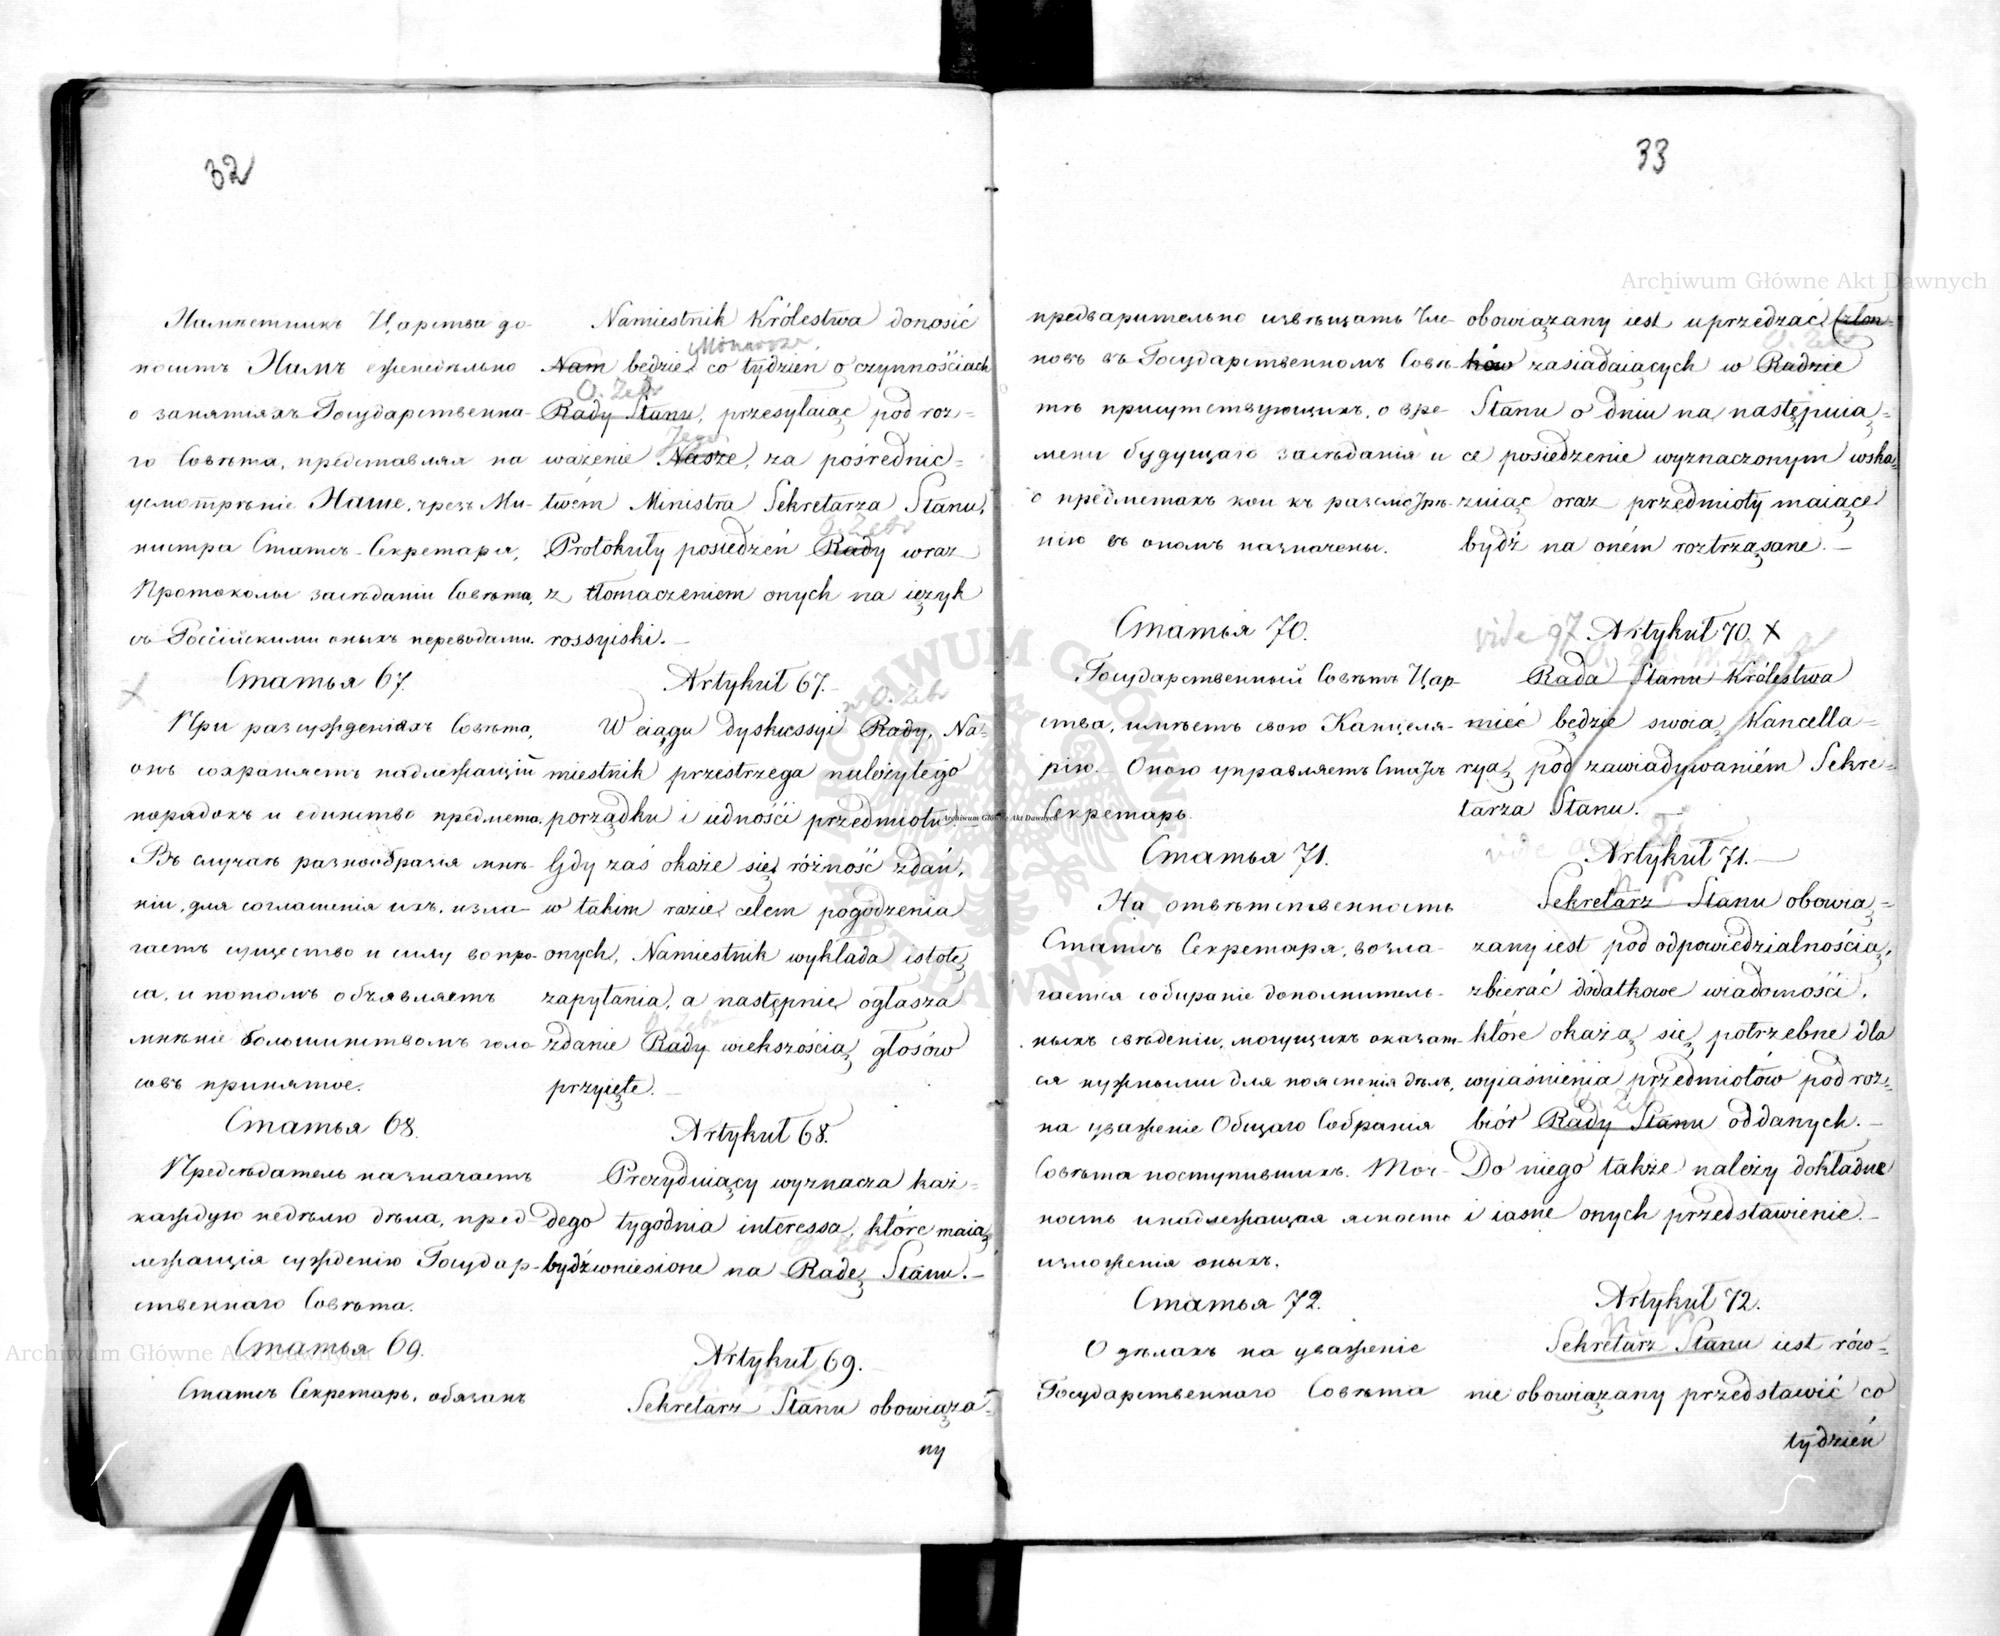 32
Намѣстникъ Царства до-
носитъ Намъ еженедѣльно
о занятіяхъ Государственна-
го Совѣта, представляя на
усмотрѣніе Наше, чрезъ Ми-
нистра Статсъ-Секретаря,
Протоколы засѣданіи Совѣта,
съ Россійскими оныхъ переводами.
Статья 67.
При разсужденіяхъ Совѣта,
онъ сохраняетъ надлежащій
порядокъ и единство предмета.
Въ случаѣ разнообразія мнѣ-
ніи, для соглашенія ихъ, изла-
гаетъ существо и силу вопро-
са, и потомъ объявляетъ
мнѣніе большинствомъ голо
совъ принятое.
Статья 68.
Предсѣдатель назначаетъ
каждую недѣлю дѣла, пред-
лежащія сужденію Государ-
ственнаго Совѣта.
Статья 69.
Статсъ Секретарь, обязанъ
Namiestnik Królestwa donosić
Monarsze
Nam będzie co tydzień o czynnościach
O. Zebr
Rady Stanu, przesyłaiąc pod roz=
Jego
ważenie Nasze, za pośrednic=
twém Ministra Sekretarza Stanu,
O. Zebr
Protokuły posiedzeń Rady wraz
z tłomaczeniem onych na ięzyk
rossyiski.—
Artykuł 67.—
O. Zebr
W ciągu dyskussyi Rady, Na=
miestnik przestrzega należytego
porządku i iedności przedmiotu.
Gdy zaś okaże się różność zdań,
w takim razie celem pogodzenia
onych, Namiestnik wykłada istotę
zapytania, a następnie ogłasza
O. Zebr
zdanie Rady większością głosów
przyięte.—
Artykuł 68.
Prezyduiący wyznacza każ=
dego tygodnia interessa, które maią
bydź wniesione na Radę Stanu.—
Artykuł 69.—
Sekretarz Stanu obowiąza=
ny
33
предварительно извѣщать Чле-
новъ въ Государственномъ Совѣ-
тѣ присутствующихъ, о вре-
мени будущаго засѣданія и
о предметахъ кои къ разсмотрѣ-
нію въ ономъ назначены.
Статья 70.
Государственный Совѣтъ Цар-
ства, имѣетъ свою Канцеля-
рію. Оною управляетъ Статсъ
Секретарь.
Статья 71.
На отвѣтственность
Статсъ Секретаря, возла-
гается собираніе дополнитель-
ныхъ свѣденіи, могущихъ оказать-
ся нужными для поясненія дѣлъ,
на уваженіе Общаго Собранія
Совѣта поступившихъ. Точ-
ность и надлежащая ясность
изложенія оныхъ.
Статья 72.
О дѣлахъ на уваженіе
Государственнаго Совѣта
obowiązany iest uprzedzać Człon=
O. Zebr
ków zasiadaiących w Radzie
Stanu o dniu na następuią=
ce posiedzenie wyznaczonym wska=
zuiąc oraz przedmioty maiące
bydź na onem roztrząsane.—
vide 97 Artykuł 70. X
Rada Stanu Królestwa
mieć będzie swoią Kancella=
ryą pod zawiadywaniém Sekre=
tarza Stanu.—
vide Artykuł 71.—
Sekretarz Stanu obowią=
zany iest pod odpowiedzialnością,
zbierać dodatkowe wiadomości,
które okażą się potrzebne dla
wyiaśnienia przedmiotów pod roz=
O. Zeb
biór Rady Stanu oddanych.—
Do niego także należy dokładne
i iasne onych przedstawienie.—
Artykuł 72.
Sekretarz Stanu iest rów=
nie obowiązany przedstawić co
tydzień
Archiwum Główne Akt Dawnych
Archiwum Główne Akt Dawnych
Archiwum Główne Akt Dawnych
ARCHIWUM GŁÓWNE AKT DAWNYCH